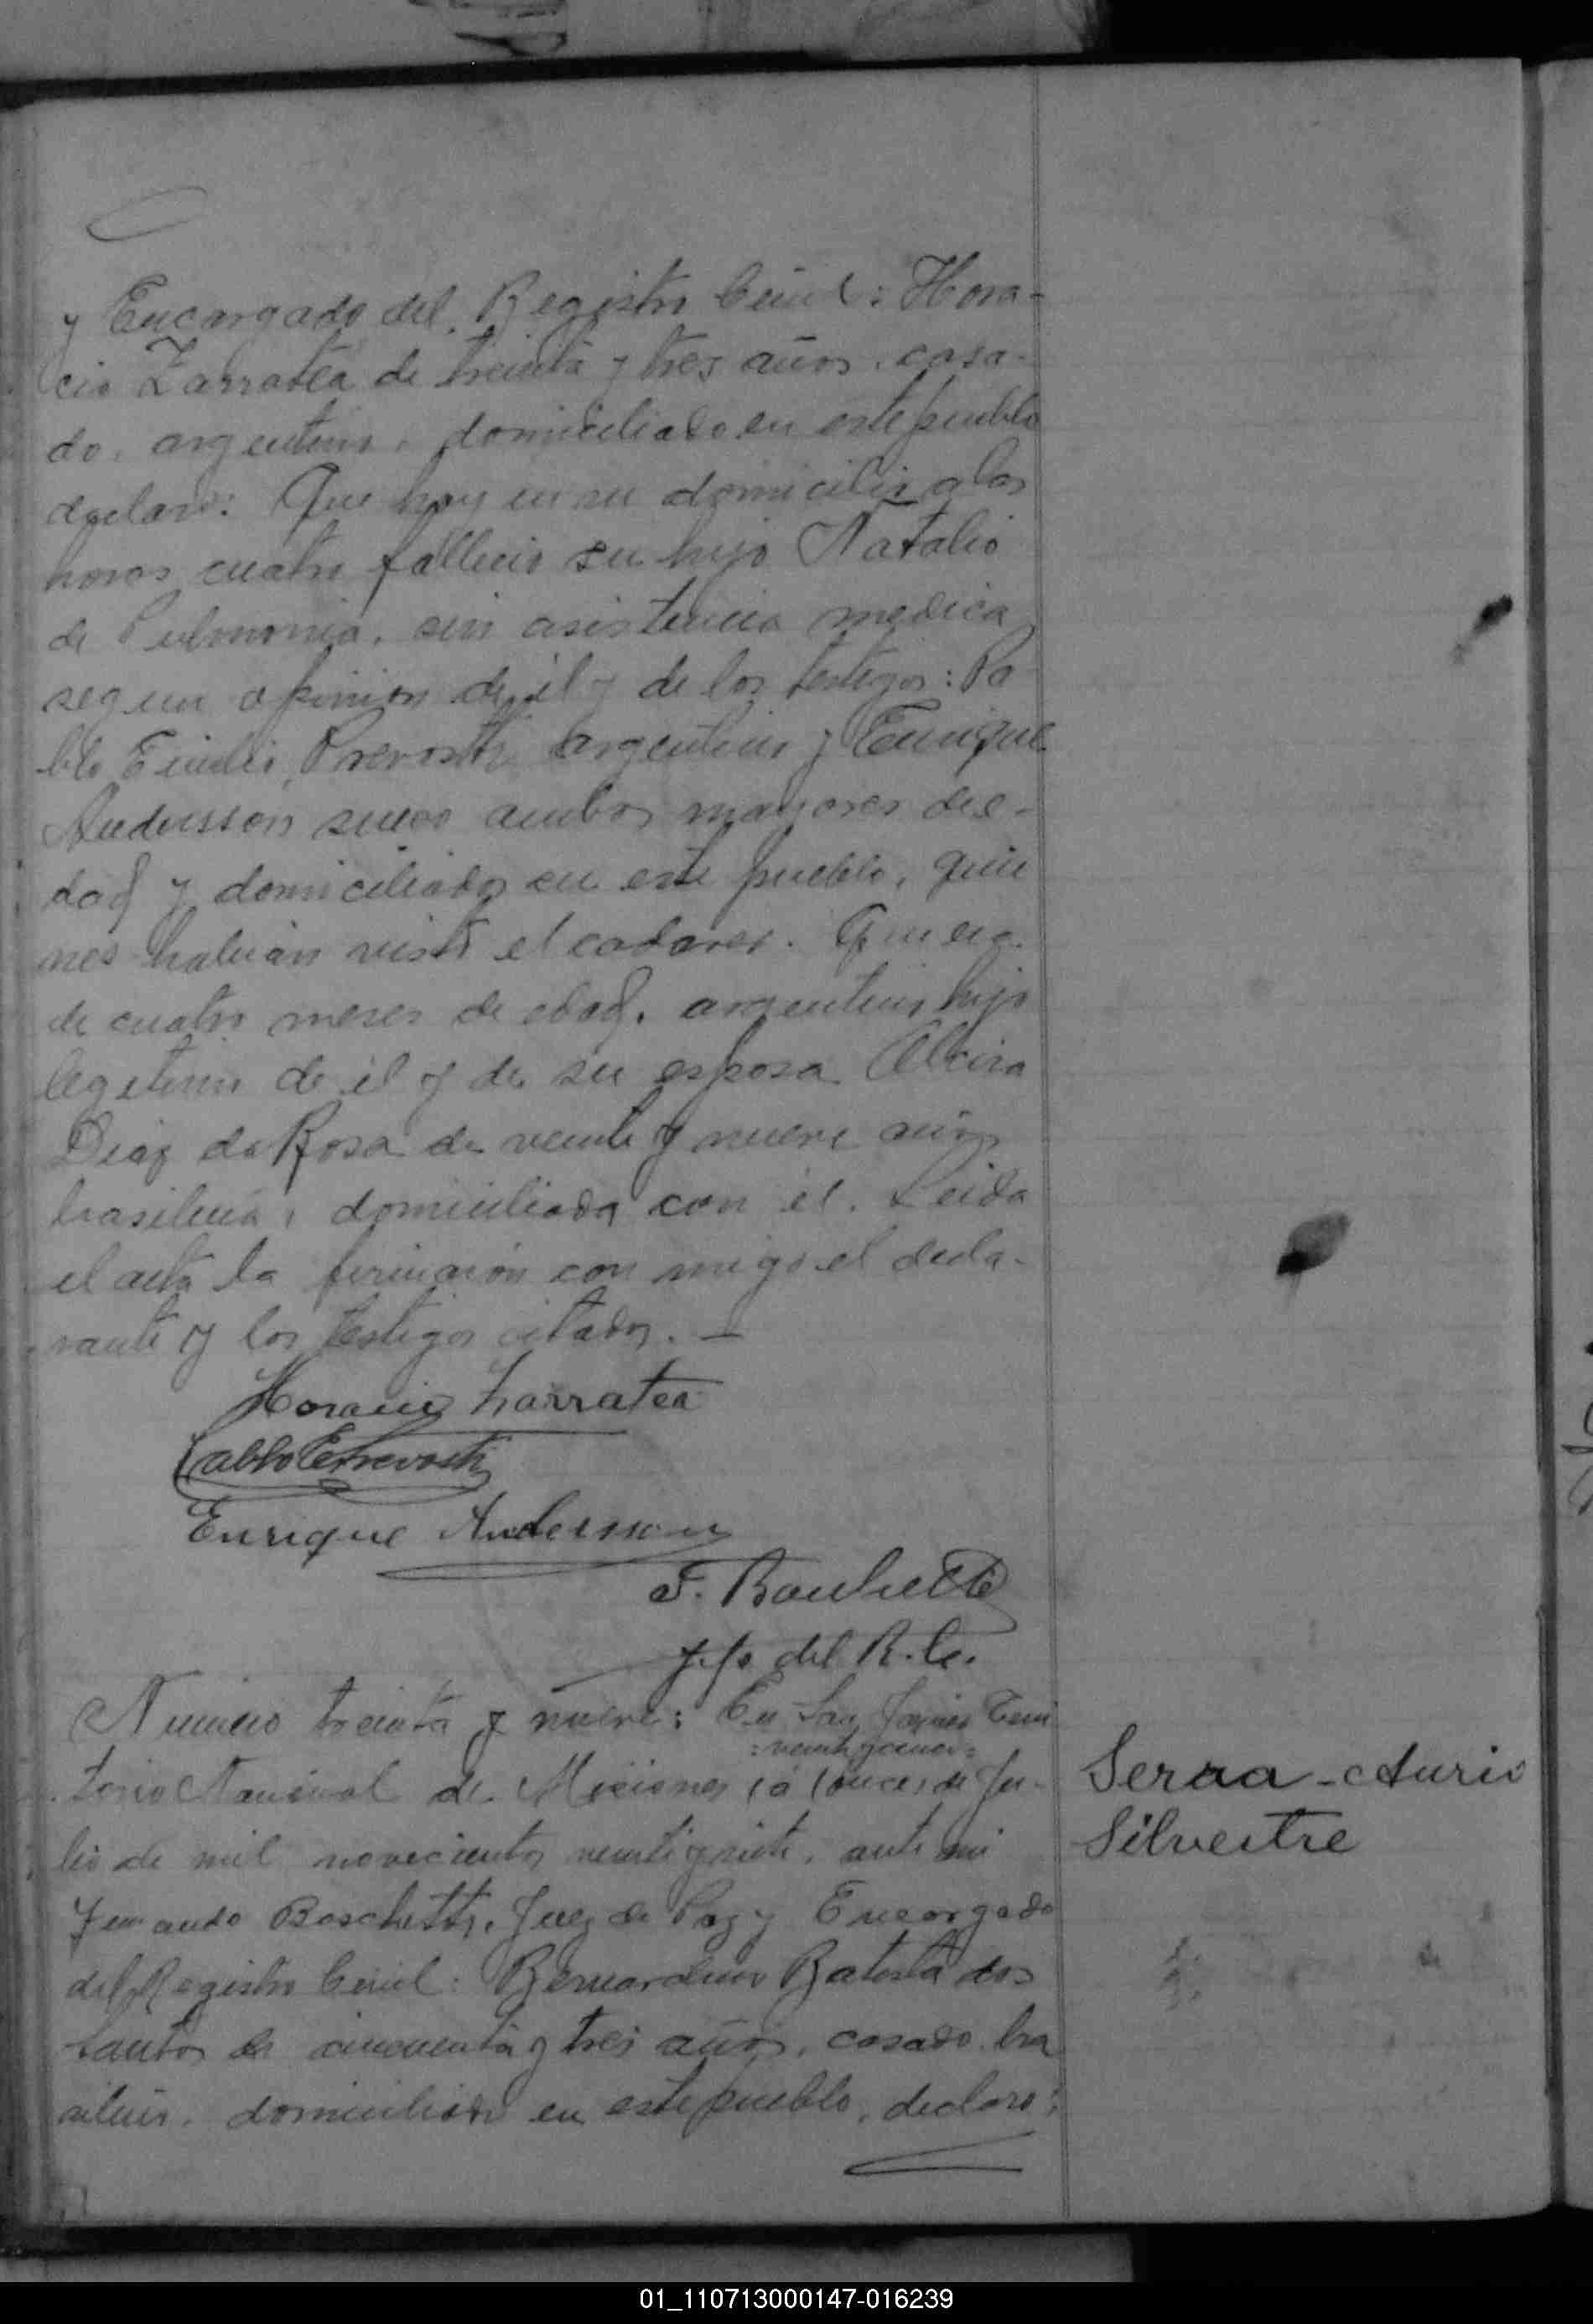 y Encargado del Registro Civil: Hora-
cio Zarratea de treinta y tres años, casa-
do, argentino, domiciliado en este pueblo
declaro: Que hoy en su domicilio a las
horas cuatro fallecio su hijo Natalio
de Pulmonia, sin asistencia medica
segun opinion de él y de los testigos: Pa-
blo Emilio Prevosti argentino y Enrique
Andersson sueco ambos mayores de e-
dad y domiciliados en este pueblo, quie
nes habian visto el cadaver. Que era
de cuatro meses de edad, argentino hijo
legitimo de él y de su esposa Alcira
Diaz da Rosa de veinte y nueve años
brasilera, domiciliada con él. Leida
el acta la firmaron con migo el decla-
rante y los testigos citados. —
Horacio Zarratea
Pablo E Prevosti
Enrique Andersson
F. Boschetti
Jefe del R. C.
Numero treinta y nueve: En San Javier Terri
:veinti
torio Nacional de Misiones (a (once) de Ju-
lio de mil novecientos veintiysiete, ante mi
Fernando Boschetti, Juez de Paz y Encargado
del Registro Civil: Bernardino Batista dos
Santos de cincuenta y tres años, casado, bra
silero, domiciliado en este pueblo, declaro:
Serra - Aurio
Silvestre
01_110713000147-016239